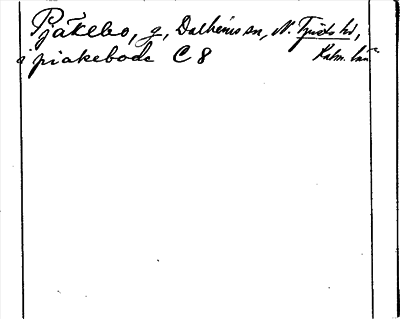 Pjäkebo, g, Dalhems sn, N. Tjusts hd,
i piakebode C 8 Kalm. län